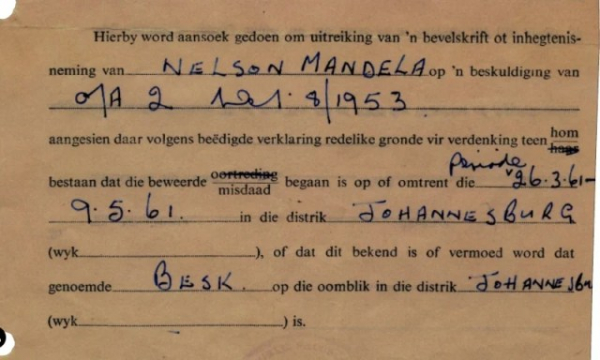 Hierby word aansoek gedoen om uitreiking van 'n bevelskrift ot inhegtenis-
neming van NELSON MANDELA op 'n beskuldiging van
o/A 2 8/1953
aangesien daar volgens beëdigde verklaring redelike gronde vir verdenking teen hom/haar
bestaan dat die beweerde oortreding/misdaad begaan is op of omtrent die periode 26.3.61-
9.5.61. in die distrik JOHANNESBURG
(wyk), of dat dit bekend is of vermoed word dat
genoemde BESK. op die oomblik in die distrik
(wyk) is.